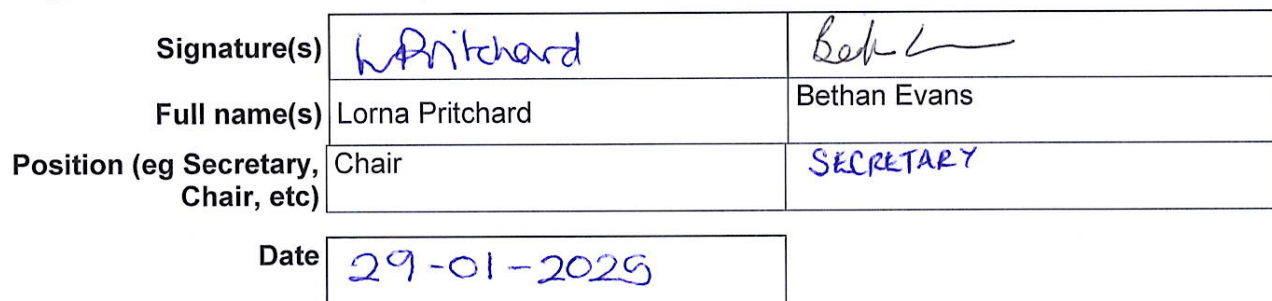 Signature(s) LPritchard
Full name(s) Lorna Pritchard Bethan Evans
Position (eg Secretary, Chair SECRETARY
Chair, etc)
Date 29-01-2025